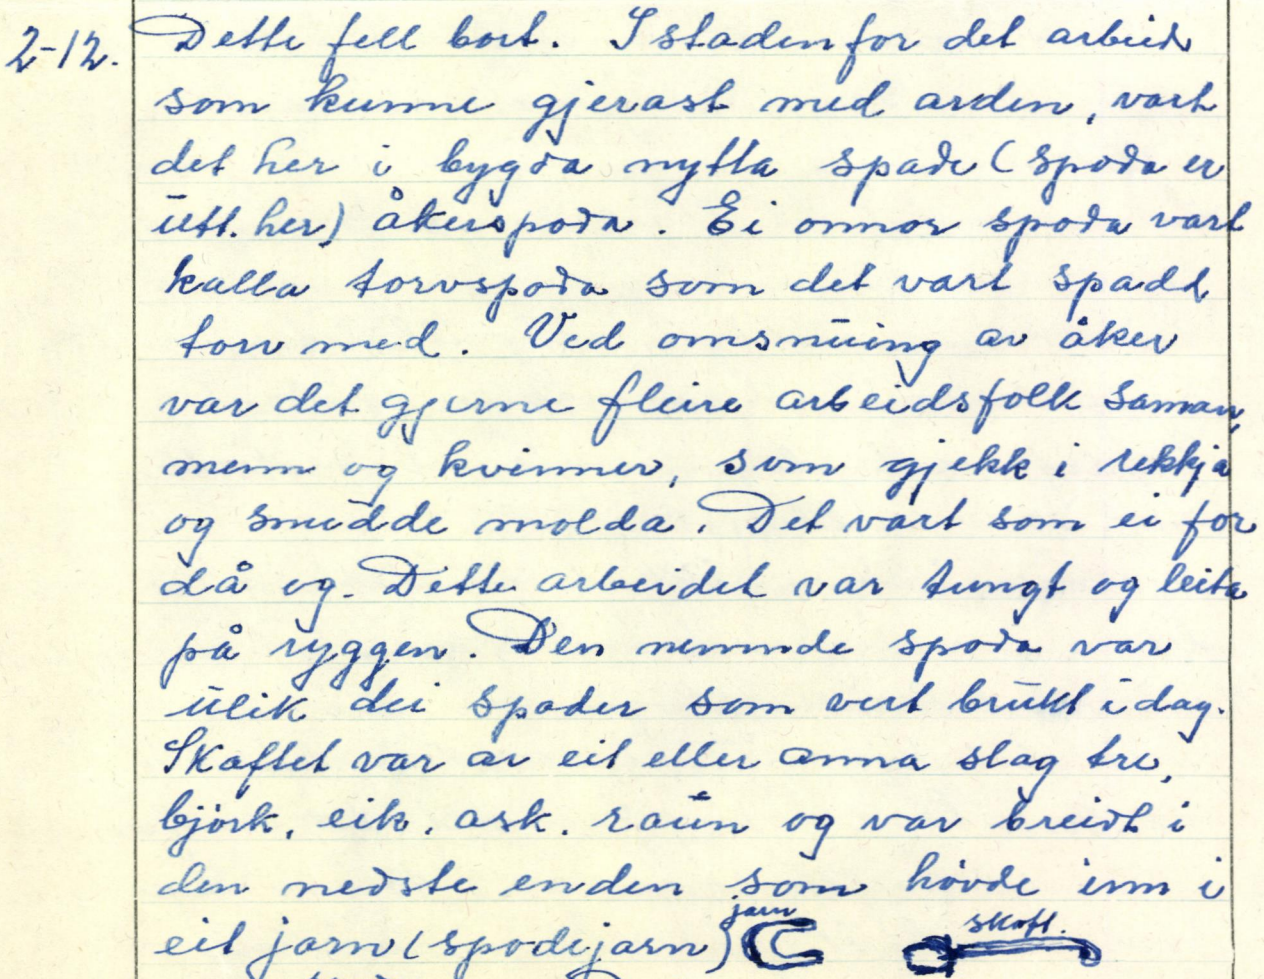 2-12. Dette fell bort. I staden for det arbeid
som kunne gjerast med arden, vart
det her i bygda nytta spade (spoda er
utt. her) åkerspoda. Ei onnor spoda vart
kalla torvspoda som det vart spadd
torv med. Ved omsnuing av åker
var det gjerne fleire arbeidsfolk saman,
menn og kvinner, som gjekk i rekkja
og snudde molda. Det vart som ei for
då og. Dette arbeidet var tungt og leita
på ryggen. Den nemnde spoda var
ulik dei spader som vert brukt i dag.
Skaftet var av eit eller anna slag tre,
björk, eik, ask. raun og var breidt i
den nedste enden som hövde inn i
eit jarn (spodejarn) jarn skaft.